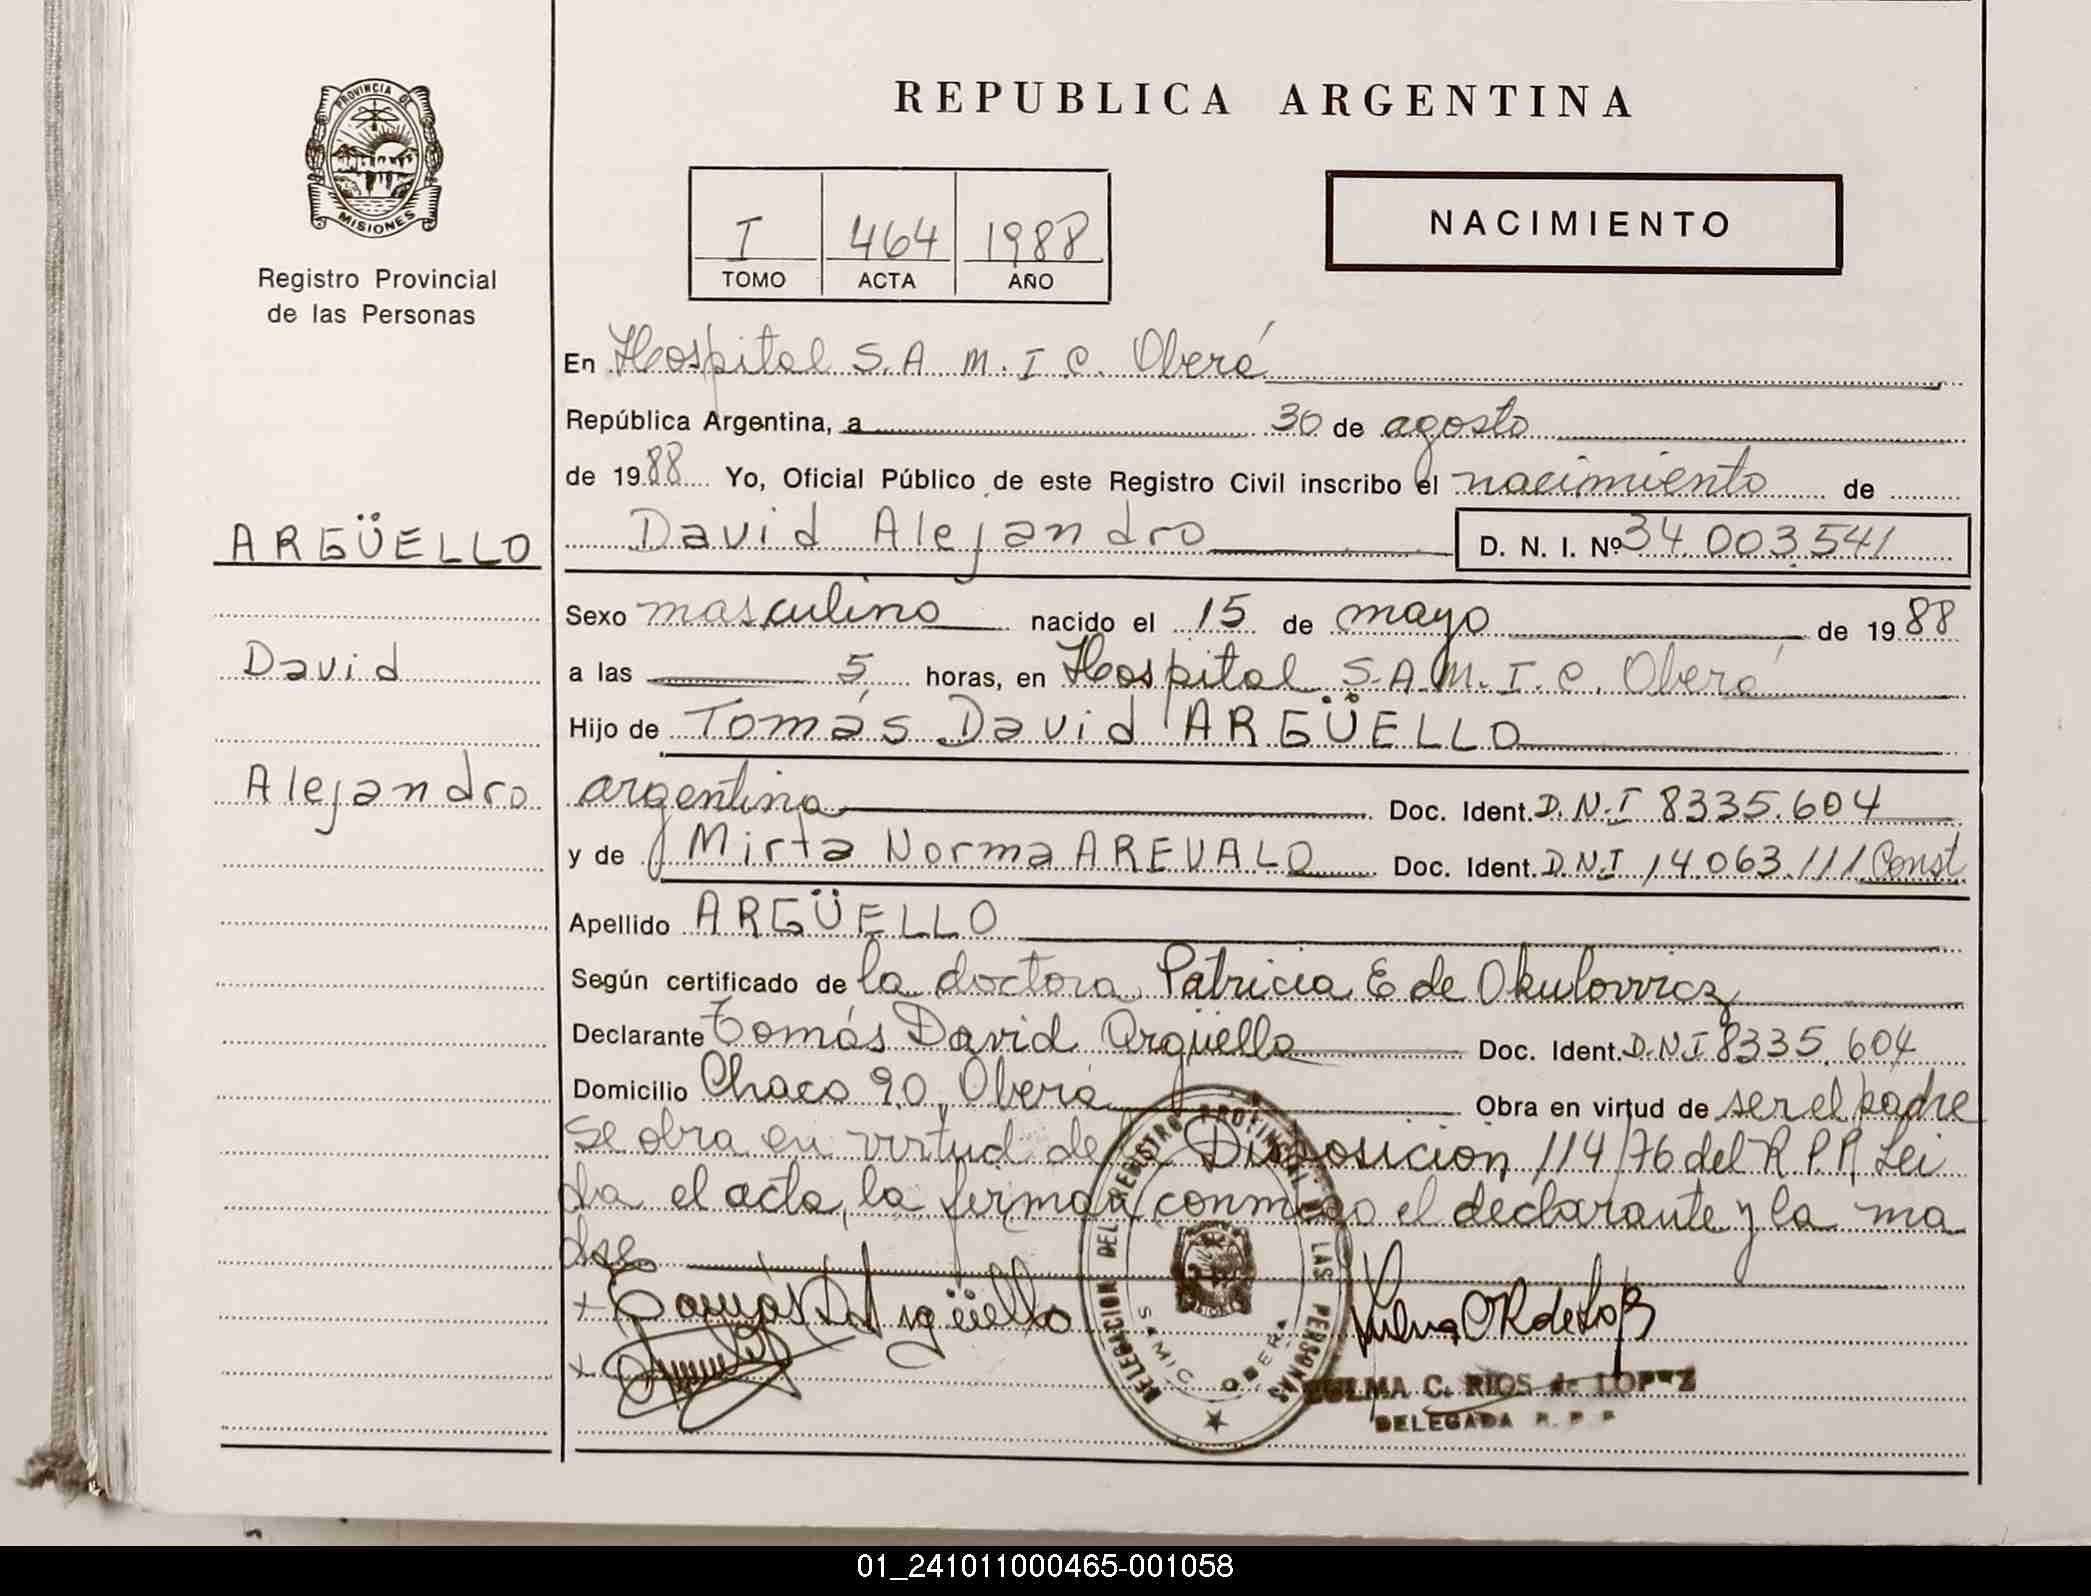 PROVINCIA DE
MISIONES
Registro Provincial
de las Personas
ARGÜELLO
David
Alejandro
REPUBLICA ARGENTINA
I 464 1988
TOMO ACTA AÑO
NACIMIENTO
En Hospital S.A.M.I.C. Oberá
República Argentina, a 30 de agosto
de 1988 Yo, Oficial Público de este Registro Civil inscribo el nacimiento de
David Alejandro D. N. I. Nº 34.003.541
Sexo masculino nacido el 15 de mayo de 1988
a las 5 horas, en Hospital S.A.M.I.C. Oberá
Hijo de Tomás David ARGÜELLO
argentino Doc. Ident. D.N.I 8335.604
y de Mirta Norma AREVALO Doc. Ident. D.N.I 14.063.111 Const
Apellido ARGÜELLO
Según certificado de la doctora Patricia E de Okulovvicz
Declarante Tomás David Argüello Doc. Ident. D.N.I 8335.604
Domicilio Chaco 90, Oberá Obra en virtud de ser el padre
Se obra en virtud de la Disposición 114/76 del R.P.P. Lei
da el acta, la firman conmigo el declarante y la ma
dre
+ Tomás D. Argüello
+
DELEGACION DEL REGISTRO PROVINCIAL DE LAS PERSONAS
SAMIC OBERÁ
ZULMA C. RIOS de LOPEZ
DELEGADA R. P. P.
01_241011000465-001058